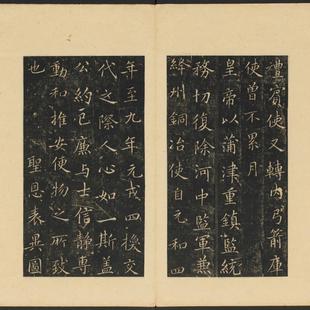 禮賓使又轉內弓箭庫
使曾不累月
皇帝以蒲津重鎮監統
務切復除河中監軍兼
絳州銅冶使自元和四
年至九年元戎四換交
代之際人心如一斯蓋
公約己廉与士信静專
動和推安便物之所致
也 聖恩表異圖